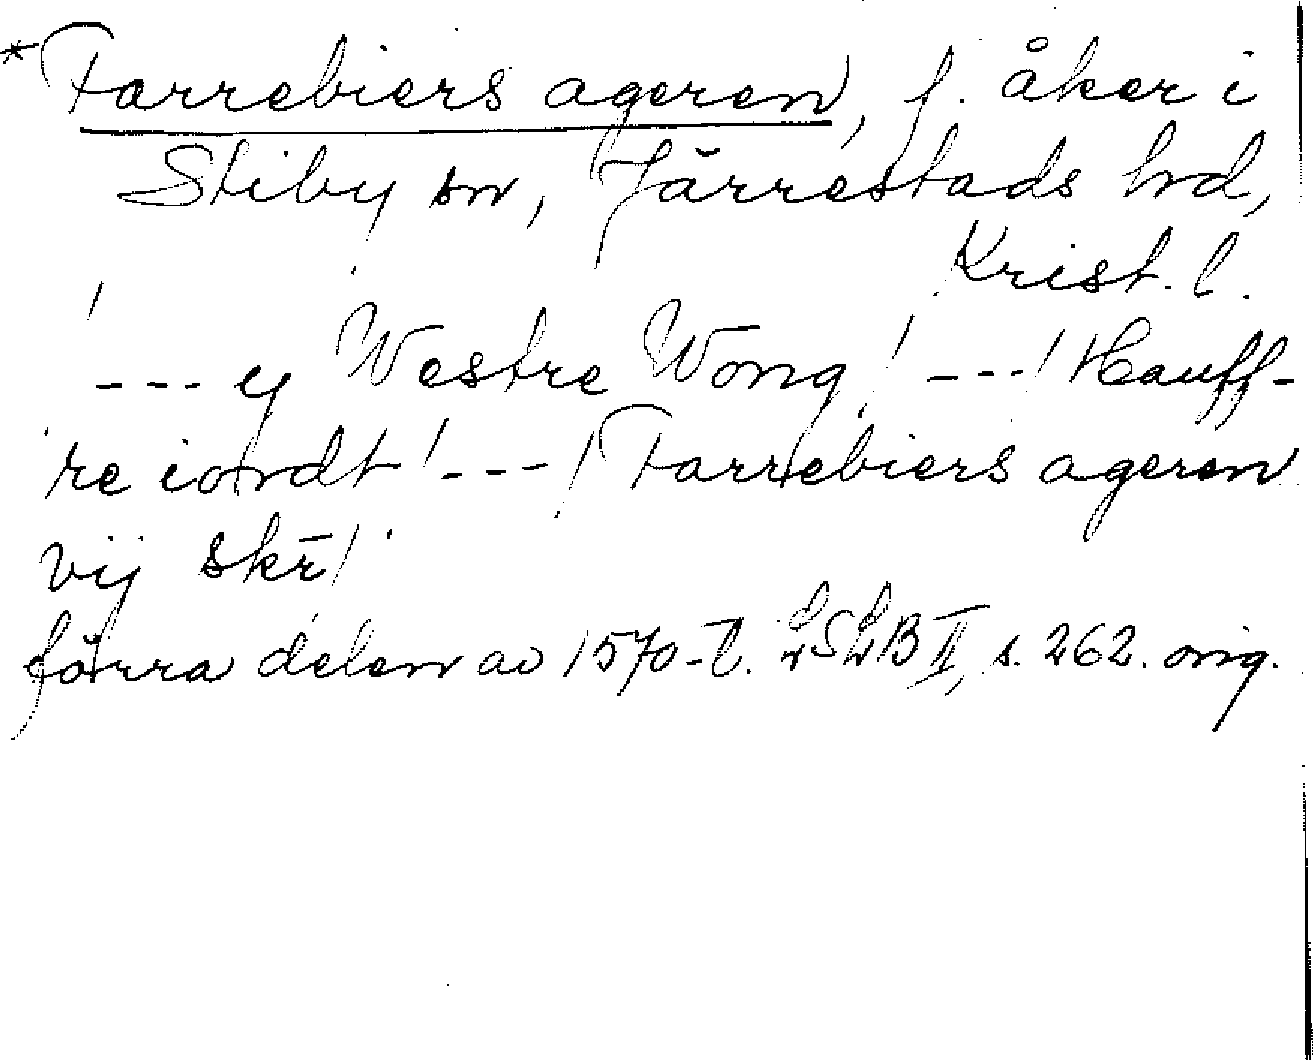 *Farrebiers ageren, f. åker i
Stiby sn, Järrestads hd,
Krist. l.
/--- ij Westre Wong /---/ Hauff-
re iordt /---/ Farrebiers ageren
vij skr̄/
förra delen av 1570-t. LSLB II, s. 262. orig.